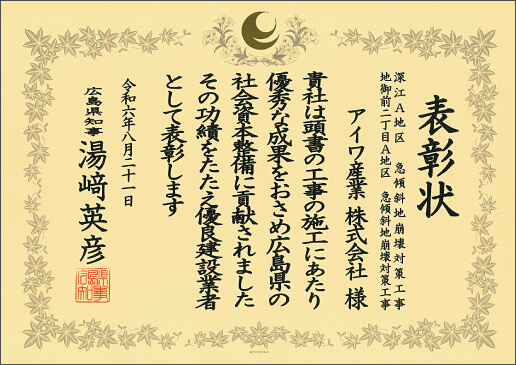 表彰状
深江A地区 急傾斜地崩壊対策工事
地御前二丁目A地区 急傾斜地崩壊対策工事
アイワ産業 株式会社 様
貴社は頭書の工事の施工にあたり
優秀な成果をおさめ広島県の
社会資本整備に貢献されました
その功績をたたえ優良建設業者
として表彰します
令和六年八月二十一日
広島県知事 湯﨑英彦